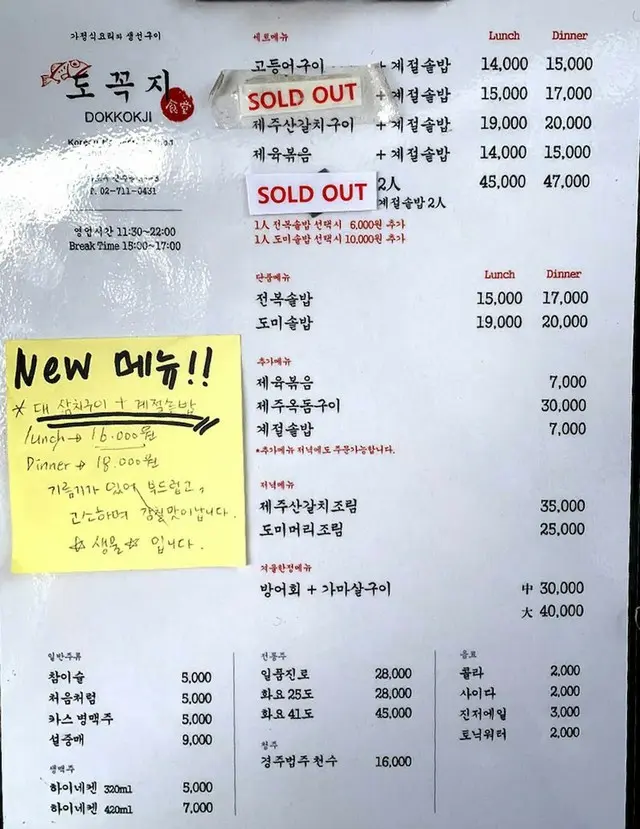 가정식요리와 생선구이
도꼭지
食堂
DOKKOKJI
T. 02-711-0431
영업시간 11:30~22:00
Break Time 15:00~17:00
New 메뉴!!
* 대 삼치구이 + 계절솥밥
lunch → 16.000원
Dinner → 18.000원
기름기가 있어 부드럽고,
고소하며 감칠맛이납니다.
☆ 생물 ☆ 입니다.
세트메뉴 Lunch Dinner
고등어구이 + 계절솥밥 14,000 15,000
SOLD OUT + 계절솥밥 15,000 17,000
제주산갈치구이 + 계절솥밥 19,000 20,000
제육볶음 + 계절솥밥 14,000 15,000
SOLD OUT 2人 45,000 47,000
계절솥밥 2人
1人 전복솥밥 선택시 6,000원 추가
1人 도미솥밥 선택시 10,000원 추가
단품메뉴 Lunch Dinner
전복솥밥 15,000 17,000
도미솥밥 19,000 20,000
추가메뉴
제육볶음 7,000
제주옥돔구이 30,000
계절솥밥 7,000
*추가메뉴 저녁에도 주문가능합니다.
저녁메뉴
제주산갈치조림 35,000
도미머리조림 25,000
겨울한정메뉴
방어회 + 가마살구이 中 30,000
大 40,000
일반주류
참이슬 5,000
처음처럼 5,000
카스 병맥주 5,000
설중매 9,000
생맥주
하이네켄 320ml 5,000
하이네켄 420ml 7,000
전통주
일품진로 28,000
화요 25도 28,000
화요 41도 45,000
청주
경주법주 천수 16,000
음료
콜라 2,000
사이다 2,000
진저에일 3,000
토닉워터 2,000